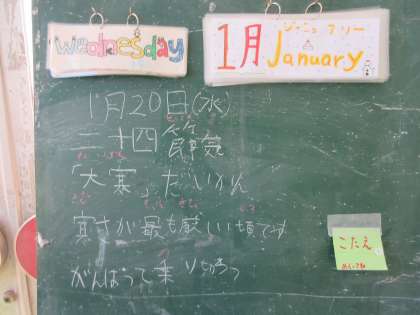 Wednesday
1月 ジャニュアリー
January
1月20日(水)
二十四節気
「大寒」だいかん
寒さが最も厳しい頃です
がんばって乗りきろう
こたえ